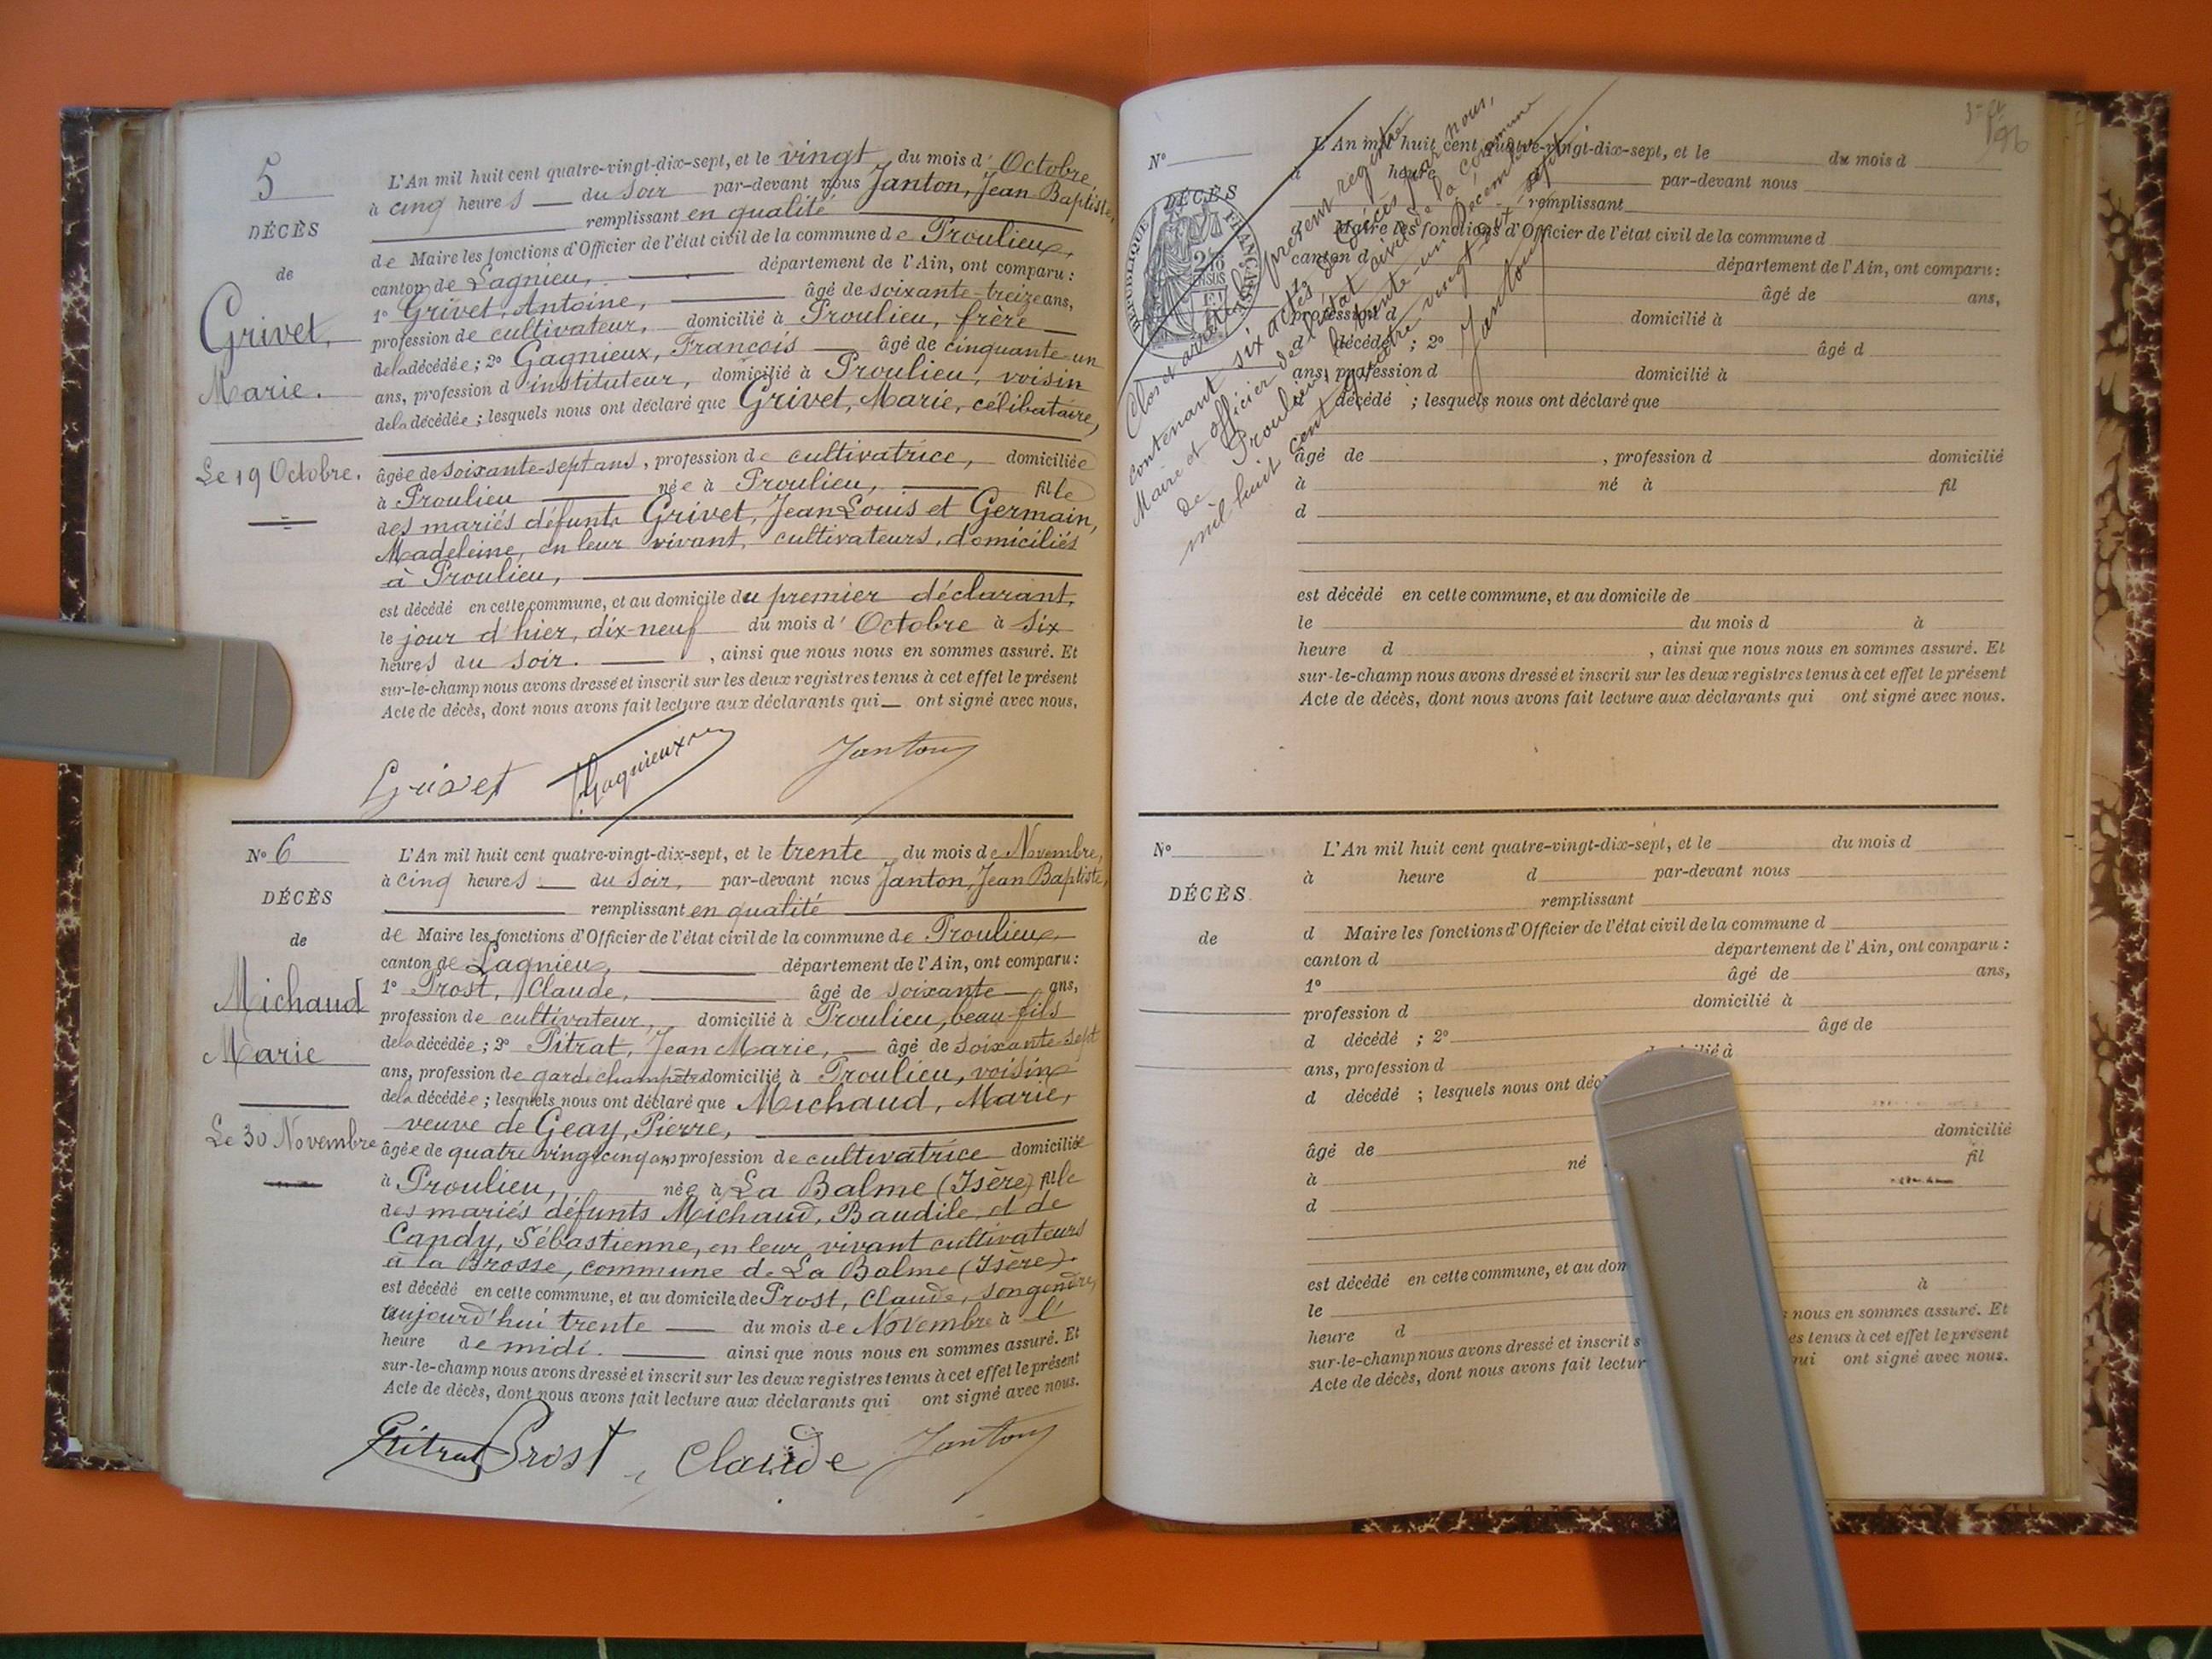 5
DÉCÈS
de
Grivet,
Marie.
Le 19 Octobre.
L'An mil huit cent quatre-vingt-dix-sept, et le vingt du mois d' Octobre,
à cinq heures du soir par-devant nous Janton, Jean Baptiste,
remplissant en qualité
de Maire les fonctions d'Officier de l'état civil de la commune de Proulieu,
canton de Lagnieu, département de l'Ain, ont comparu :
1° Grivet, Antoine, âgé de soixante-treize ans,
profession de cultivateur, domicilié à Proulieu, frère
de la décédée ; 2° Gagnieux, François âgé de cinquante-un
ans, profession d'instituteur, domicilié à Proulieu, voisin
de la décédée ; lesquels nous ont déclaré que Grivet, Marie, célibataire,
âgée de soixante-sept ans, profession de cultivatrice, domiciliée
à Proulieu née à Proulieu, fille
des mariés défunts Grivet, Jean Louis et Germain,
Madeleine, en leur vivant, cultivateurs, domiciliés
à Proulieu,
est décédé en cette commune, et au domicile du premier déclarant,
le jour d'hier, dix-neuf du mois d' Octobre à six
heures du soir. , ainsi que nous nous en sommes assuré. Et
sur-le-champ nous avons dressé et inscrit sur les deux registres tenus à cet effet le présent
Acte de décès, dont nous avons fait lecture aux déclarants qui ont signé avec nous,
Grivet F. Gagnieux Janton
N° 6
DÉCÈS
de
Michaud
Marie
Le 30 Novembre
L'An mil huit cent quatre-vingt-dix-sept, et le trente du mois de Novembre,
à cinq heures du soir, par-devant nous Janton, Jean Baptiste,
remplissant en qualité
de Maire les fonctions d'Officier de l'état civil de la commune de Proulieu,
canton de Lagnieu, département de l'Ain, ont comparu :
1° Prost, Claude, âgé de soixante ans,
profession de cultivateur, domicilié à Proulieu, beau-fils
de la décédée ; 2° Pitrat, Jean Marie, âgé de soixante-sept
ans, profession de garde champêtre domicilié à Proulieu, voisin
de la décédée ; lesquels nous ont déclaré que Michaud, Marie,
veuve de Geay, Pierre,
âgée de quatre vingt cinq ans profession de cultivatrice domiciliée
à Proulieu, née à La Balme (Isère) fille
des mariés défunts Michaud, Baudile et de
Candy, Sébastienne, en leur vivant cultivateurs
à la Brosse, commune de La Balme (Isère).
est décédé en cette commune, et au domicile de Prost, Claude, son gendre,
aujourd'hui trente du mois de Novembre à l'
heure de midi. ainsi que nous nous en sommes assuré. Et
sur-le-champ nous avons dressé et inscrit sur les deux registres tenus à cet effet le présent
Acte de décès, dont nous avons fait lecture aux déclarants qui ont signé avec nous.
Pitrat Prost, Claude Janton
N°
DÉCÈS
RÉPUBLIQUE FRANÇAISE
Clos et arrêté le présent registre
contenant six actes de décès par nous,
Maire et officier de l'état civil de la commune
de Proulieu, le trente-un Décembre
mil huit cent quatre vingt dix sept.
Janton
L'An mil huit cent quatre-vingt-dix-sept, et le du mois d
à heure par-devant nous
remplissant
Maire les fonctions d'Officier de l'état civil de la commune d
canton d département de l'Ain, ont comparu :
1° âgé de ans,
profession d domicilié à
d décédé ; 2° âgé d
ans, profession d domicilié à
décédé ; lesquels nous ont déclaré que
âgé de , profession d domicilié
à né à fil
d
est décédé en cette commune, et au domicile de
le du mois d à
heure d , ainsi que nous nous en sommes assuré. Et
sur-le-champ nous avons dressé et inscrit sur les deux registres tenus à cet effet le présent
Acte de décès, dont nous avons fait lecture aux déclarants qui ont signé avec nous.
N°
DÉCÈS
de
L'An mil huit cent quatre-vingt-dix-sept, et le du mois d
à heure d par-devant nous
remplissant
d Maire les fonctions d'Officier de l'état civil de la commune d
canton d département de l'Ain, ont comparu :
1° âgé de ans,
profession d domicilié à
d décédé ; 2° âgé de
ans, profession d domicilié à
d décédé ; lesquels nous ont déc
âgé de domicilié
à né fil
d
est décédé en cette commune, et au dom
le à
heure d nous en sommes assuré. Et
sur-le-champ nous avons dressé et inscrit s es tenus à cet effet le présent
Acte de décès, dont nous avons fait lectur qui ont signé avec nous.